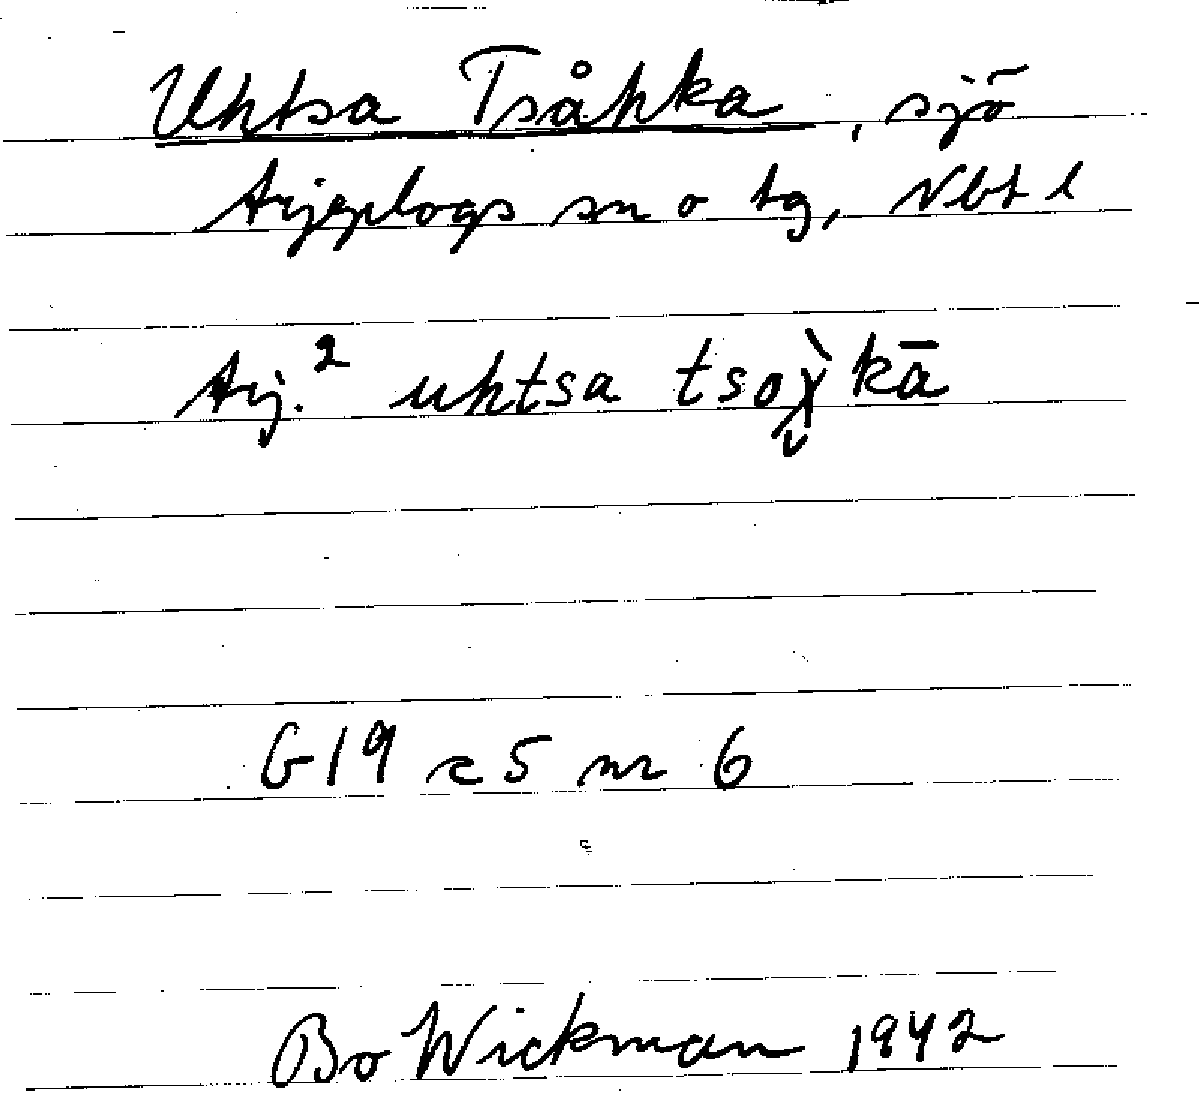 Uhtsa Tsåhka, sjö
Arjeplogs sn o tg, Nbt l
Arj.² uhtsa tsoχ̬̀kā
G19 c5 nr 6
Bo Wickman 1942